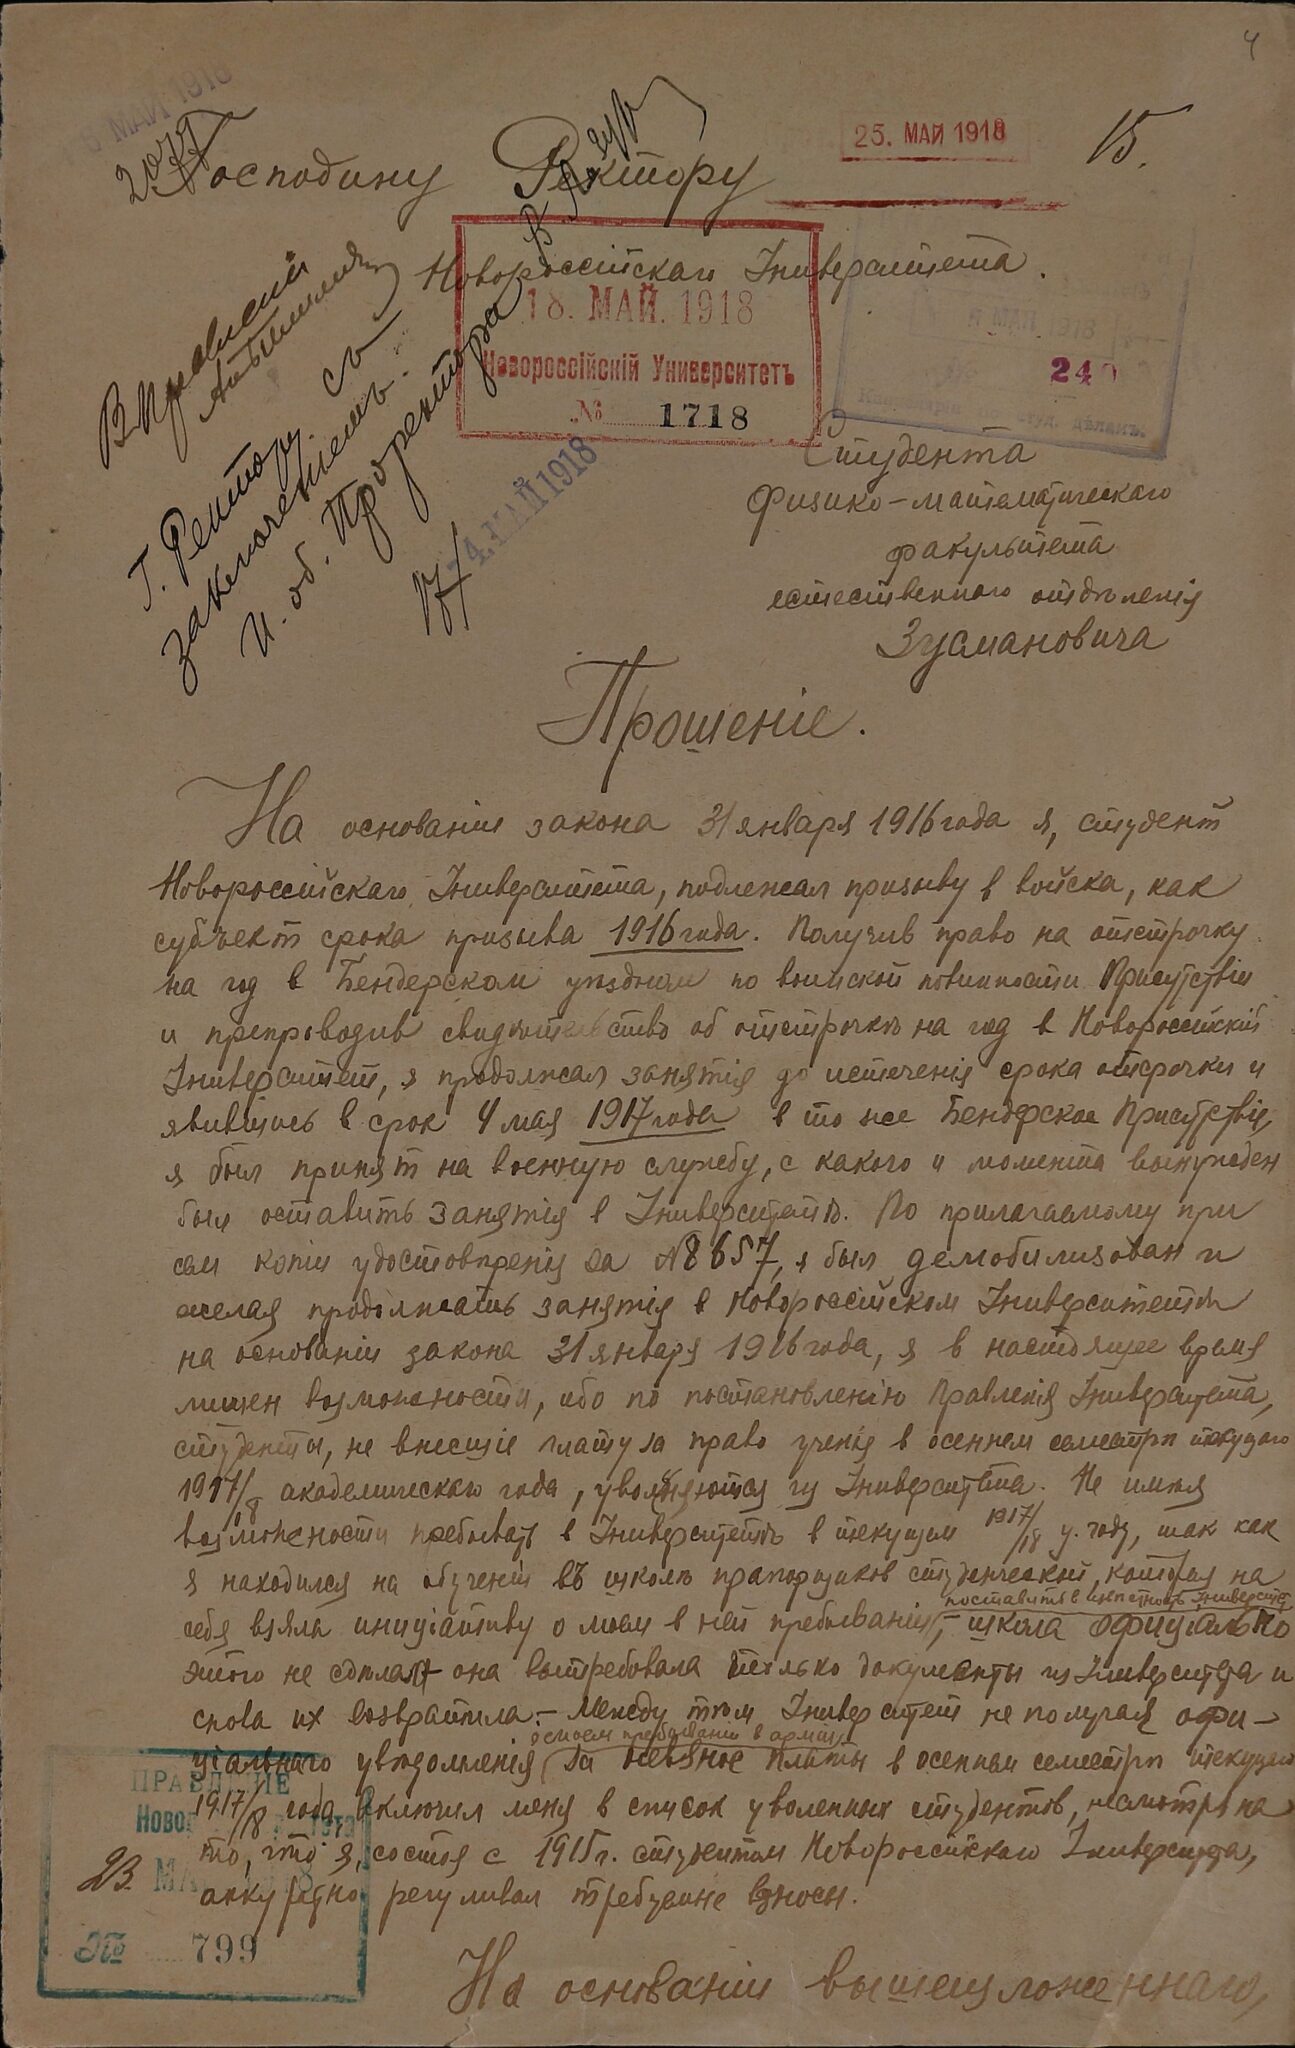 4
25. МАЙ 1918
15.
Господину Ректору
Новороссійскаго Университета.
18. МАЙ. 1918
Новороссійскій Университетъ
№ 1718
240
студ. дѣламъ.
Студента
Физико-математическаго
факультета
естественнаго отдѣленія
Зусмановича
В Правленіи
Г. Ректору съ
заключеніемъ.
И. об. Проректора
4. МАЙ 1918
Прошеніе.
На основаніи закона 31 января 1916 года я, студент
Новороссійскаго Университета, подлежал призыву в войска, как
субъект срока призыва 1916 года. Получив право на отстрочку
на год в Бендерском уѣздном по воинской повинности Присутствіи
и препроводив свидѣтельство об отстрочкѣ на год в Новороссійскій
Университет, я продолжал занятія до истеченія срока отсрочки и
явившись в срок 4 мая 1917 года в то же Бендерское Присутствіе,
я был принят на военную службу, с какого и момента вынужден
был оставить занятія в Университетѣ. По прилагаемому при
сем копіи удостовѣренія за № 8657, я был демобилизован и
желая продолжать занятія в Новороссійском Университетѣ
на основаніи закона 31 января 1916 года, я в настоящее время
лишен возможности, ибо по постановленію Правленія Университета,
студенты, не внесшіе плату за право ученія в осеннем семестрѣ текущаго
1917/8 академическаго года, увольняются из Университета. Не имѣя
возможности пребывать в Университетѣ в текущем 1917/18 у. году, так как
я находился на обученіи въ школѣ прапорщиков студенческой, которая на
себя взяла инициативу о моем в ней пребываніи поставить в извѣстность Университет, – школа официально
этого не сдѣлала – она вытребовала только документы из Университета и
снова их возвратила. – Между тѣм Университет не получая офи-
ціальнаго увѣдомленія о моем пребываніи в арміи, за невзнос платы в осеннем семестрѣ текущаго
1917/8 года включил меня в список уволенных студентов, несмотря на
то, что я, состоя с 1915 г. студентом Новороссійскаго Университета,
аккуратно регуливал требуемые взносы.
ПРАВЛЕНІЕ
23.
№ 799
На основаніи вышеизложеннаго,